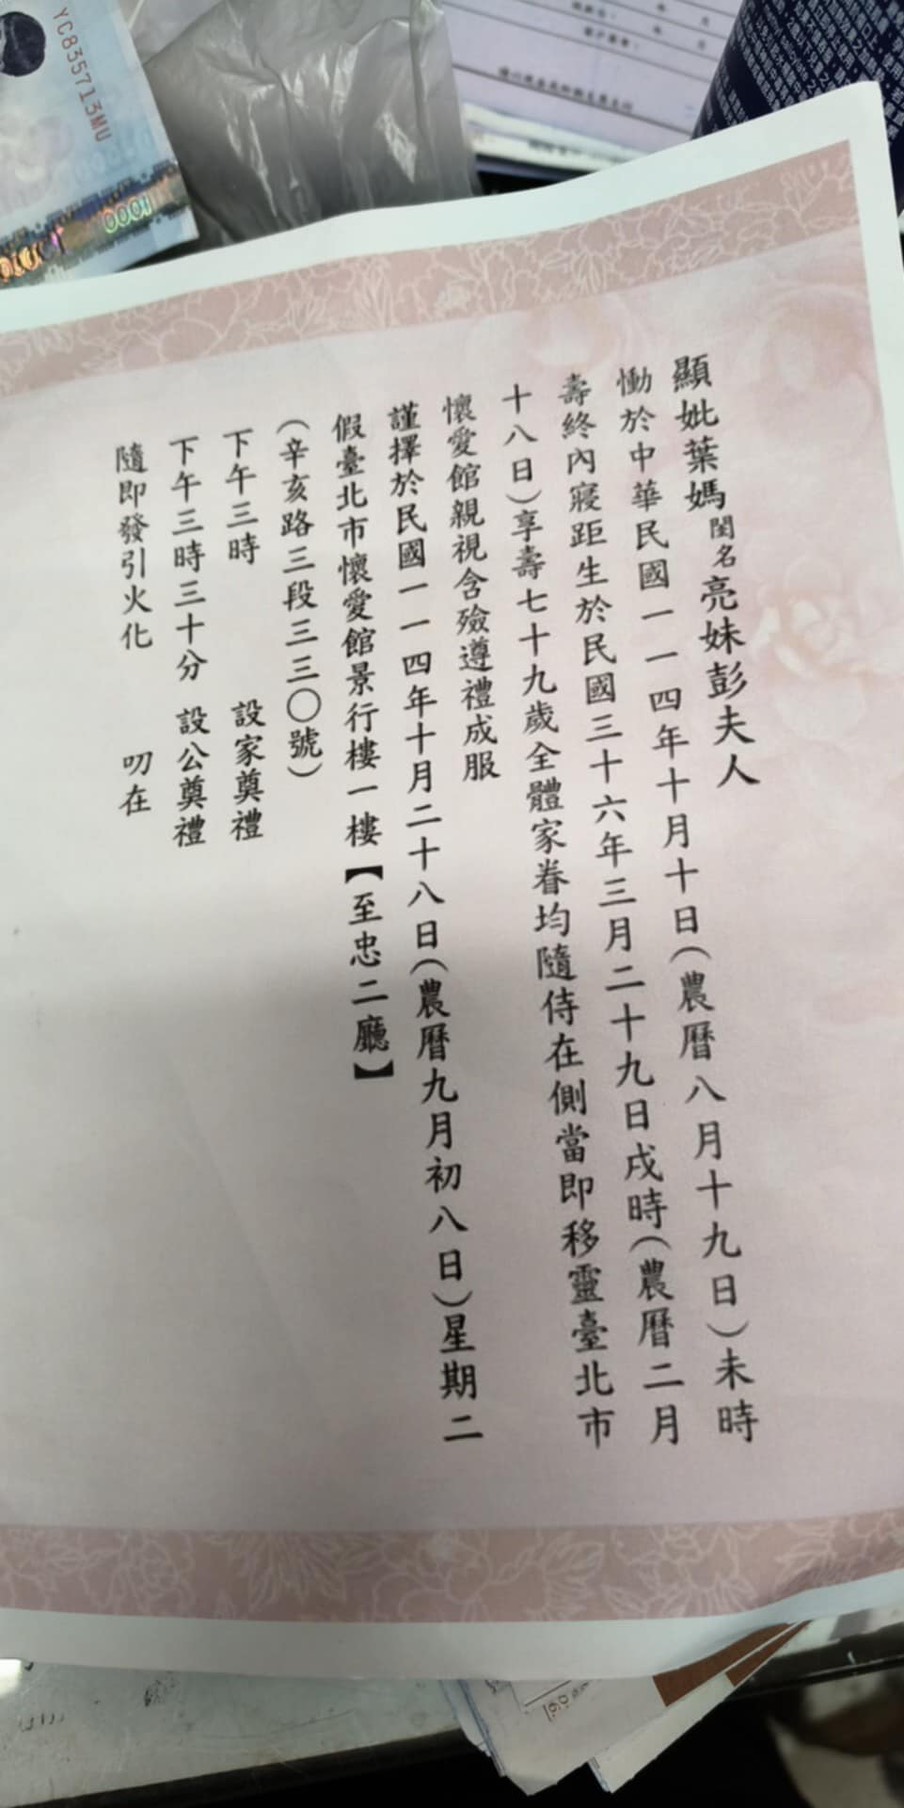 顯妣葉媽閨名亮妹彭夫人
慟於中華民國一一四年十月十日(農曆八月十九日)未時
壽終內寢距生於民國三十六年三月二十九日戌時(農曆二月
十八日)享壽七十九歲全體家眷均隨侍在側當即移靈臺北市
懷愛館親視含殮遵禮成服
謹擇於民國一一四年十月二十八日(農曆九月初八日)星期二
假臺北市懷愛館景行樓一樓【至忠二廳】
(辛亥路三段三三〇號)
下午三時 設家奠禮
下午三時三十分 設公奠禮
隨即發引火化 叨在
YC835713MU
1000